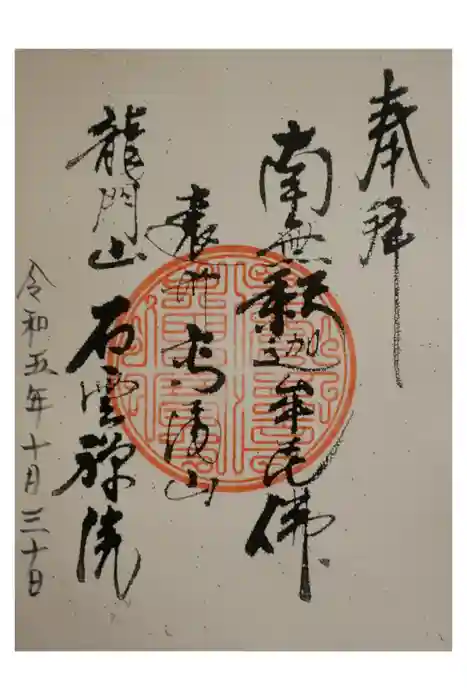 奉拜
南無釈迦牟尼佛
遠州高尾山
龍門山 石雲禅院
令和五年十月三十日